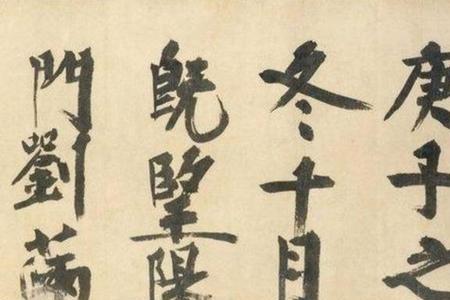 庚子之
冬十月
既朢陽
門劉